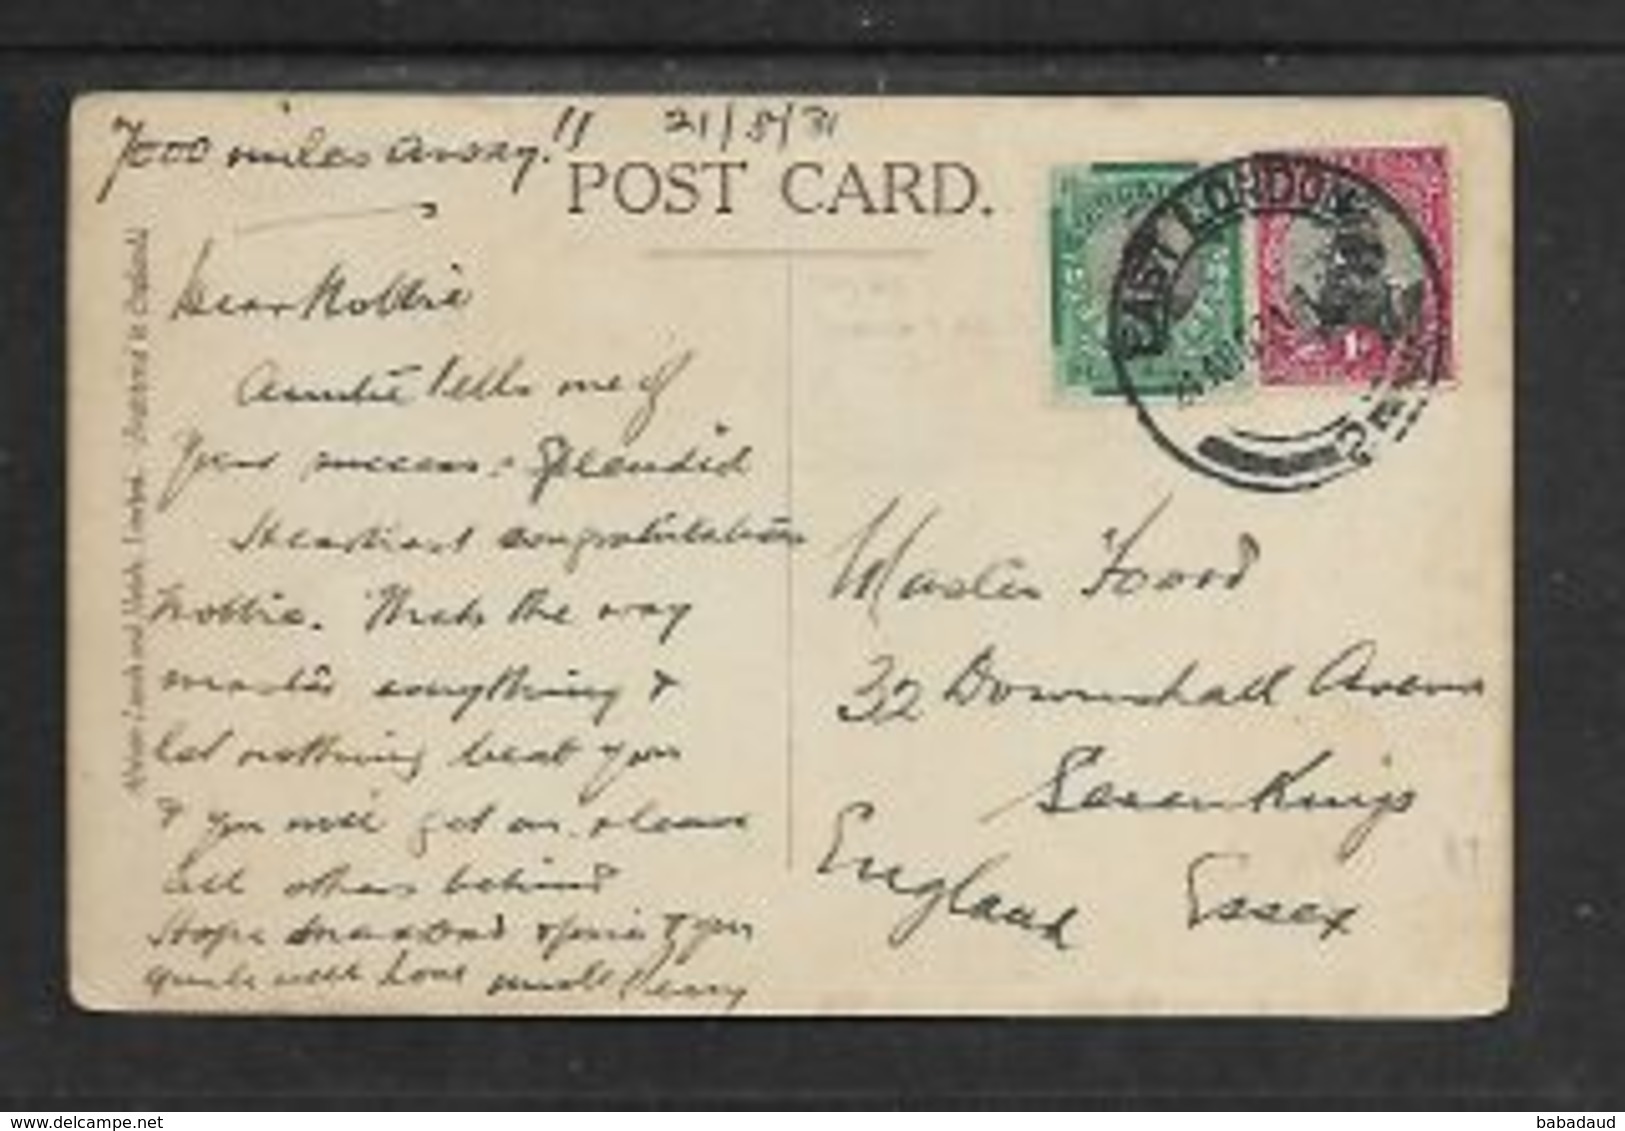 7000 miles away!!
21/5/31
POST CARD.
Dear Nobbie
Auntie tells me of
your success. Splendid
Heartiest congratulations
Nobbie. Thats the way
master everything &
let nothing beat you
& you will get on & leave
all others behind
Hope & you
quite well love uncle Percy
EAST LONDON
Master Foord
32 Downshall Avenue
Seven Kings
England Essex
delcampe.net
babadaud